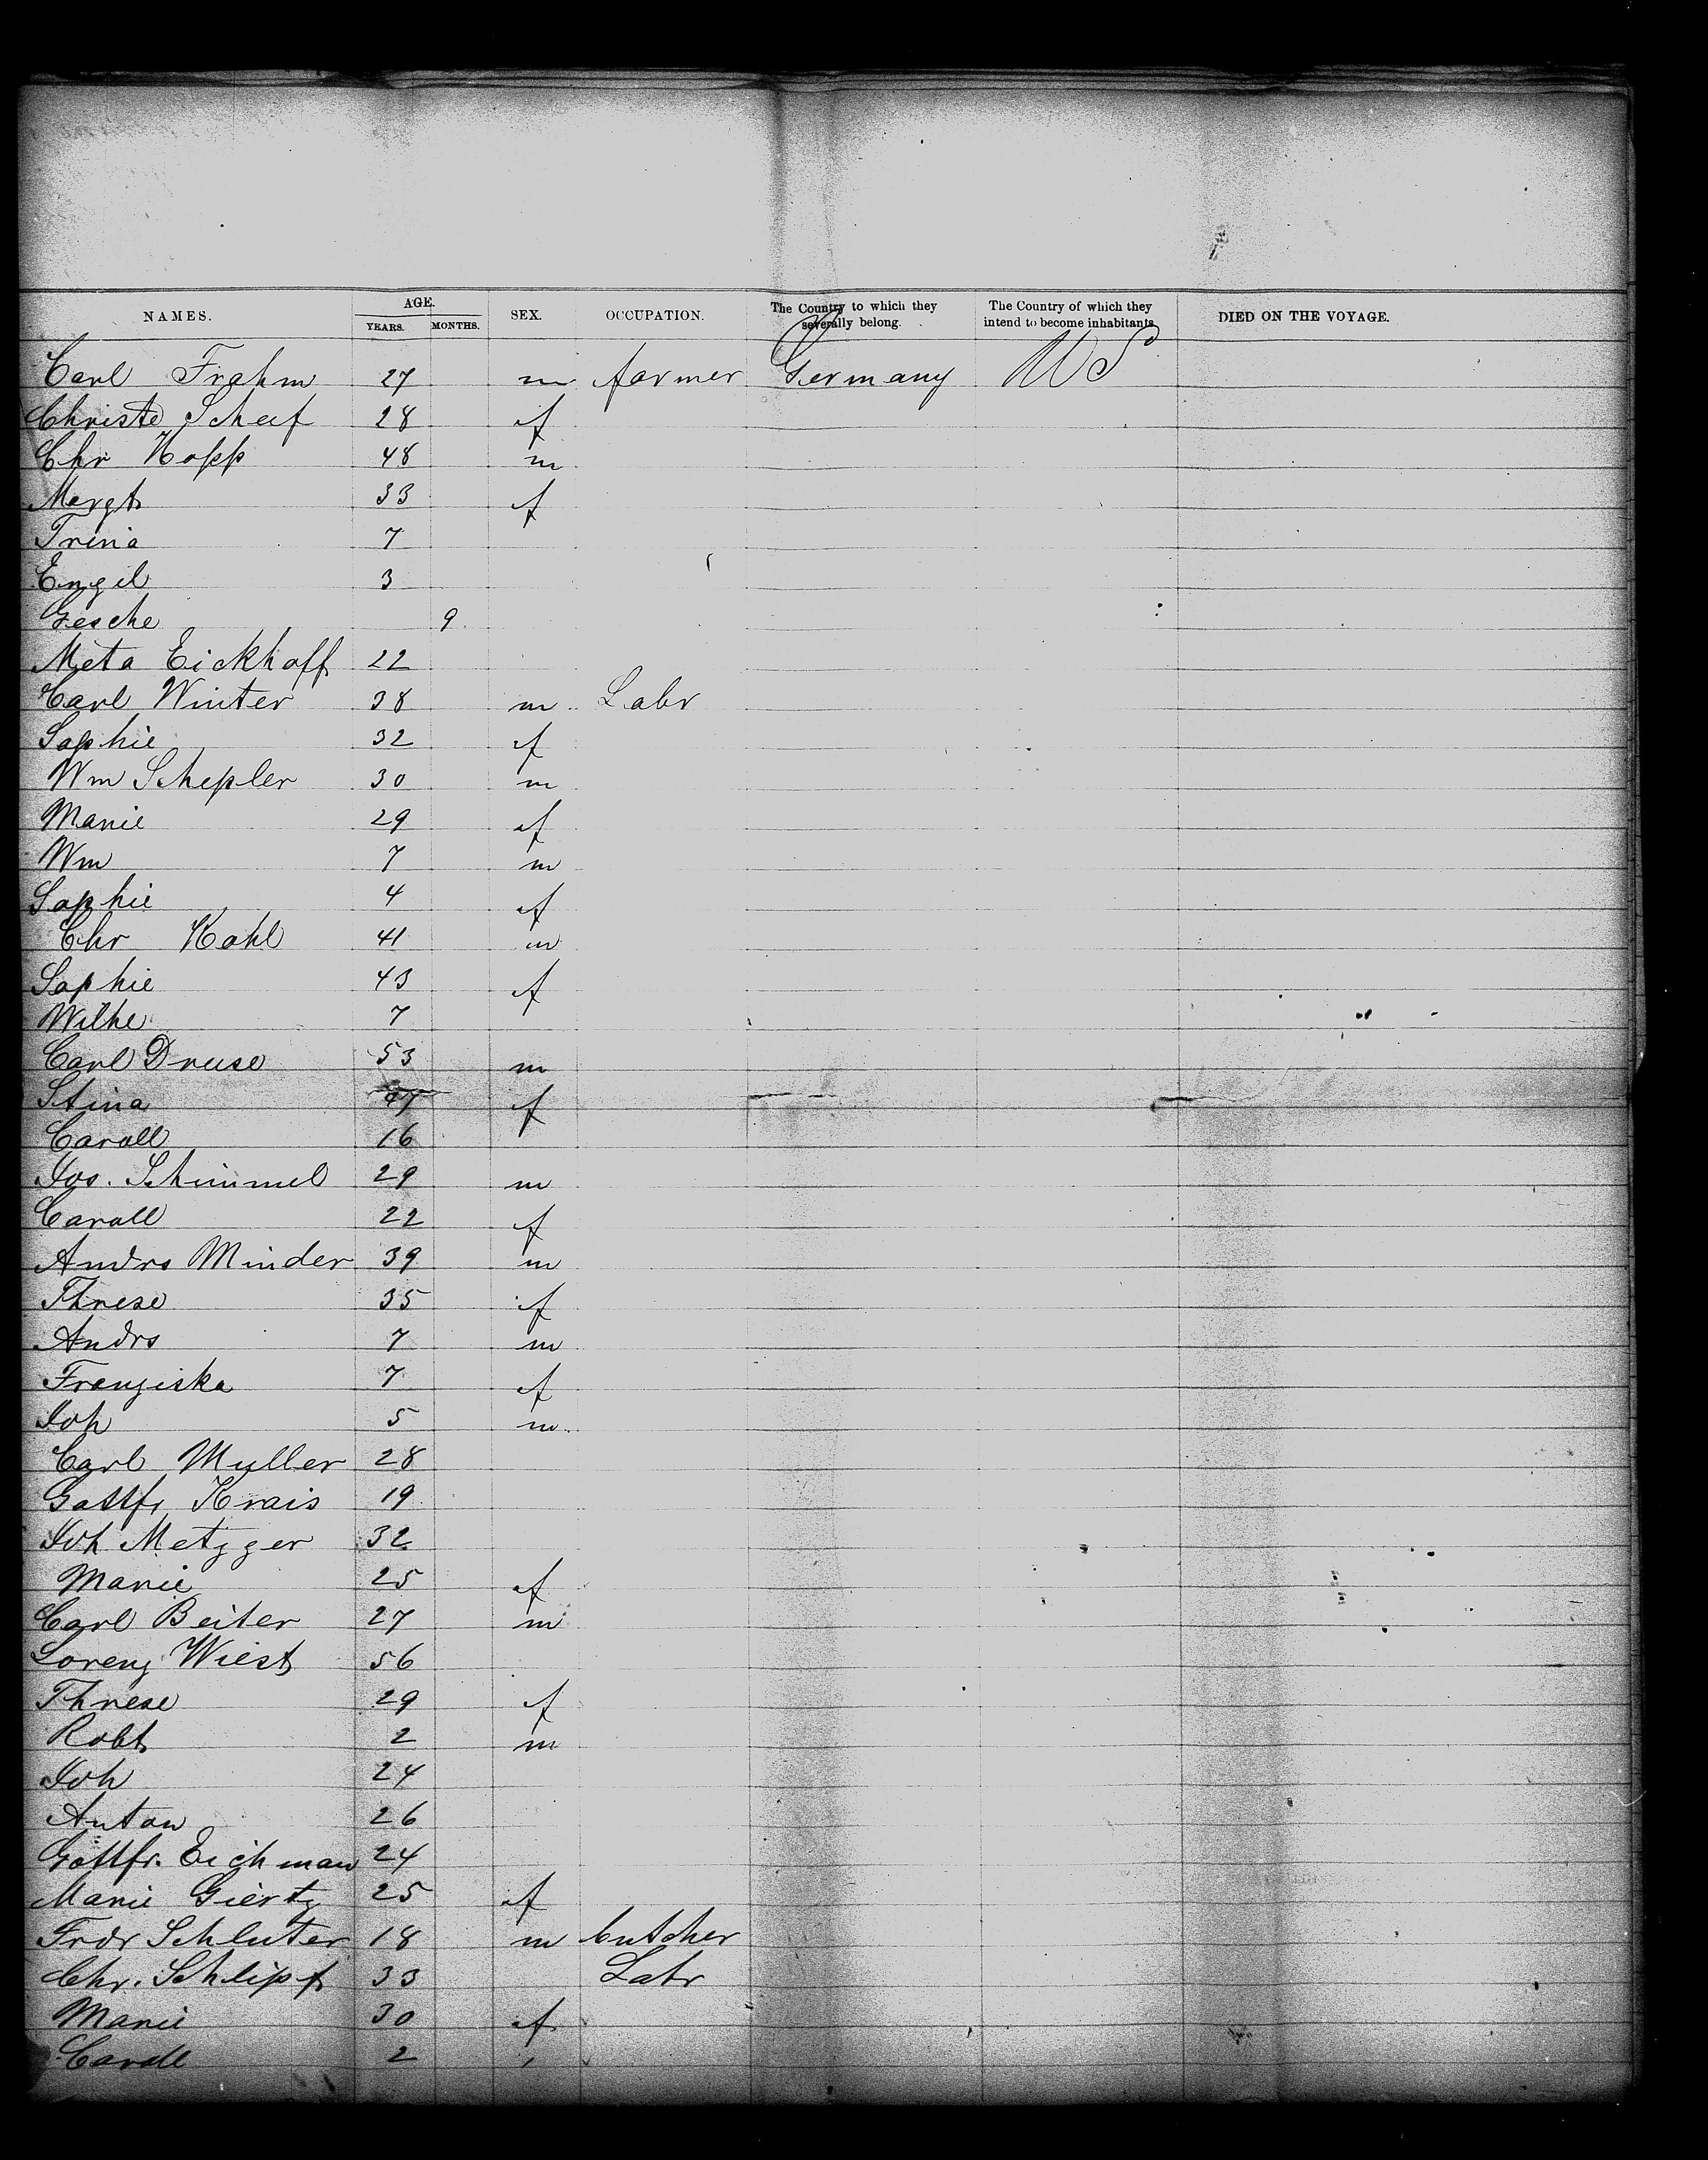 NAMES. AGE. YEARS. MONTHS. SEX. OCCUPATION. The Country to which they severally belong. The Country of which they intend to become inhabitants. DIED ON THE VOYAGE.
Carl Frahm 27 m farmer Germany US
Christe Scheif 28 f
Chr Kopp 48 m
Margt 33 f
Trina 7
Engel 3
Gesche 9
Meta Eickhoff 22
Carl Winter 38 m Labr
Sophie 32 f
Wm Schepler 30 m
Marie 29 f
Wm 7 m
Sophie 4 f
Chr Kohl 41 m
Sophie 43 f
Wilhe 7
Carl Druse 53 m
Stina 47 f
Caroll 16
Jos. Schimmel 29 m
Caroll 22 f
Andrs Minder 39 m
Threse 35 f
Andrs 7 m
Franziska 7 f
Joh 5 m
Carl Muller 28
Gottfr Krais 19
Joh Metzger 32
Marie 25 f
Carl Beiter 27 m
Lorenz Wiest 56
Threse 29 f
Robt 2 m
Joh 24
Anton 26
Gottfr. Eichman 24
Marie Giertz 25 f
Frdr Schluter 18 m butcher
Chr. Schlipf 33 Labr
Marie 30 f
Caroll 2